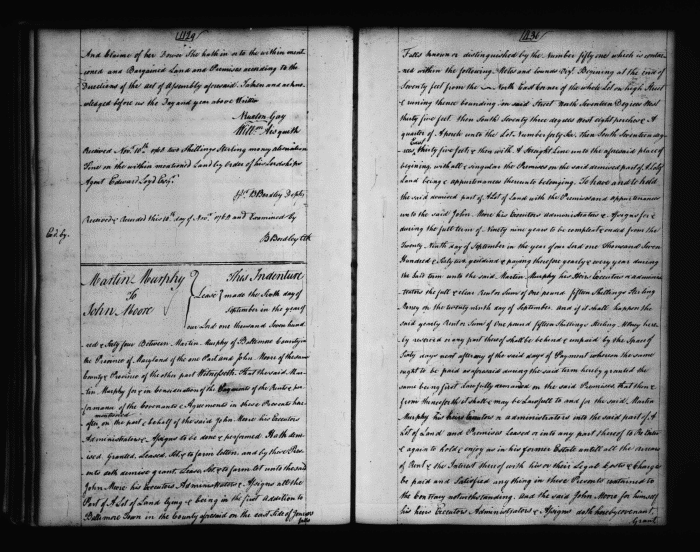 And Claime of her Dower She hath in or to the within ment
ioned and Bargained Land and Premises according to the
Directions of the Act of Assembly aforesaid. Taken and ackno
wledged before us the Day and year above Written
Nicholas Ruxton Gay
Received Novr. 10th 1763 two Shillings Sterling money alienation
Fine on the within mentioned Land by Order of his Lordships
Agent Edward Loyd Esqr.
B Bordley
Received & recorded this 10th day of Novr. 1763 and Examined by
B Bordley Clk
Exd. by.
Martin Murphy
To
John Moore
This Indenture
Lease made the Sixth day of
September in the year of
our Lord one thousand Seven hund
red & Sixty four Between Martin Murphy of Baltimore County in
the Province of Maryland of the one Part and John Moore of the same
County & Province of the other part Witnesseth That the said Mar
tin Murphy for & in Consideration of the Payments of the Rents & per
formance of the Covenants & Agreements in these Presents her
after mentioned on the part & behalf of the said John Moore his Executors
Administrators & Assigns to be done & performed Hath dem
ised, Granted, Leased, Set, & to farm letten, and by these Pres
ents doth demise, grant, Lease, Set, & to farm let unto the said
John Moore his Executors Administrators & Assigns all that
Part of A Lot of Land lying & being in the first Addition to
Baltimore Town in the County aforesaid on the east Side of Joness
falls
Falls known or distinguished by the Number fifty one which is contai
ned within the following Metes and bounds Viz. Beginning at the end of
Seventy feet from the North East Corner of the whole Lot on high Street
& runing thence bounding on said Street North Seventeen Degrees West
thirty five feet, then South Seventy three degrees West eight perches & A
quarter of A perch unto the Lot Number forty Six Then South Seventeen deg
rees East thirty five feet & then with A Straight Line unto the aforesaid place of
begining, with all & singular the Premises on the said demised part of A Lot of
Land being & appurtenances thereunto belonging. To have and to hold
the said demised part of A Lot of Land with the Premises and appurtenances
unto the said John Moore his Executors administrators & Assigns for &
during the full term of Ninety nine years to be compleat ended from the
Twenty Ninth day of September in the year of our Lord one Thousand Seven
Hundred & Sixty two yeilding & paying therefore yearly & every year during
the said term unto the said Martin Murphy his Heirs Executors or administ
rators the full & clear Rent or Sum of One pound fifteen Shillings Sterling
Money on the twenty ninth day of September. and if it shall happen the
said yearly Rent or Sum of One pound fifteen Shillings Sterling Money here
by reserved or any part thereof shall be behind & unpaid by the Space of
Sixty days next after any of the said days of Payment whereon the same
ought to be paid as aforesaid during the said term hereby granted the
same being first Lawfully demanded on the said Premises that then &
from thenceforth it shall & may be Lawfull to and for the said Martin
Murphy his heirs Executors or administrators into the said part of A
Lot of Land and Premises Leased or into any part thereof to Re Enter
& again to hold & enjoy as in his former Estate untill all the arrears
of Rent & the Interest thereof with his or their Legal Costs & Charges
be paid and Satisfied any thing in these Presents contained to
the Contrary notwithstanding. And the said John Moore for himself
his heirs Executors Administrators & Assigns doth hereby covenant,
Grant